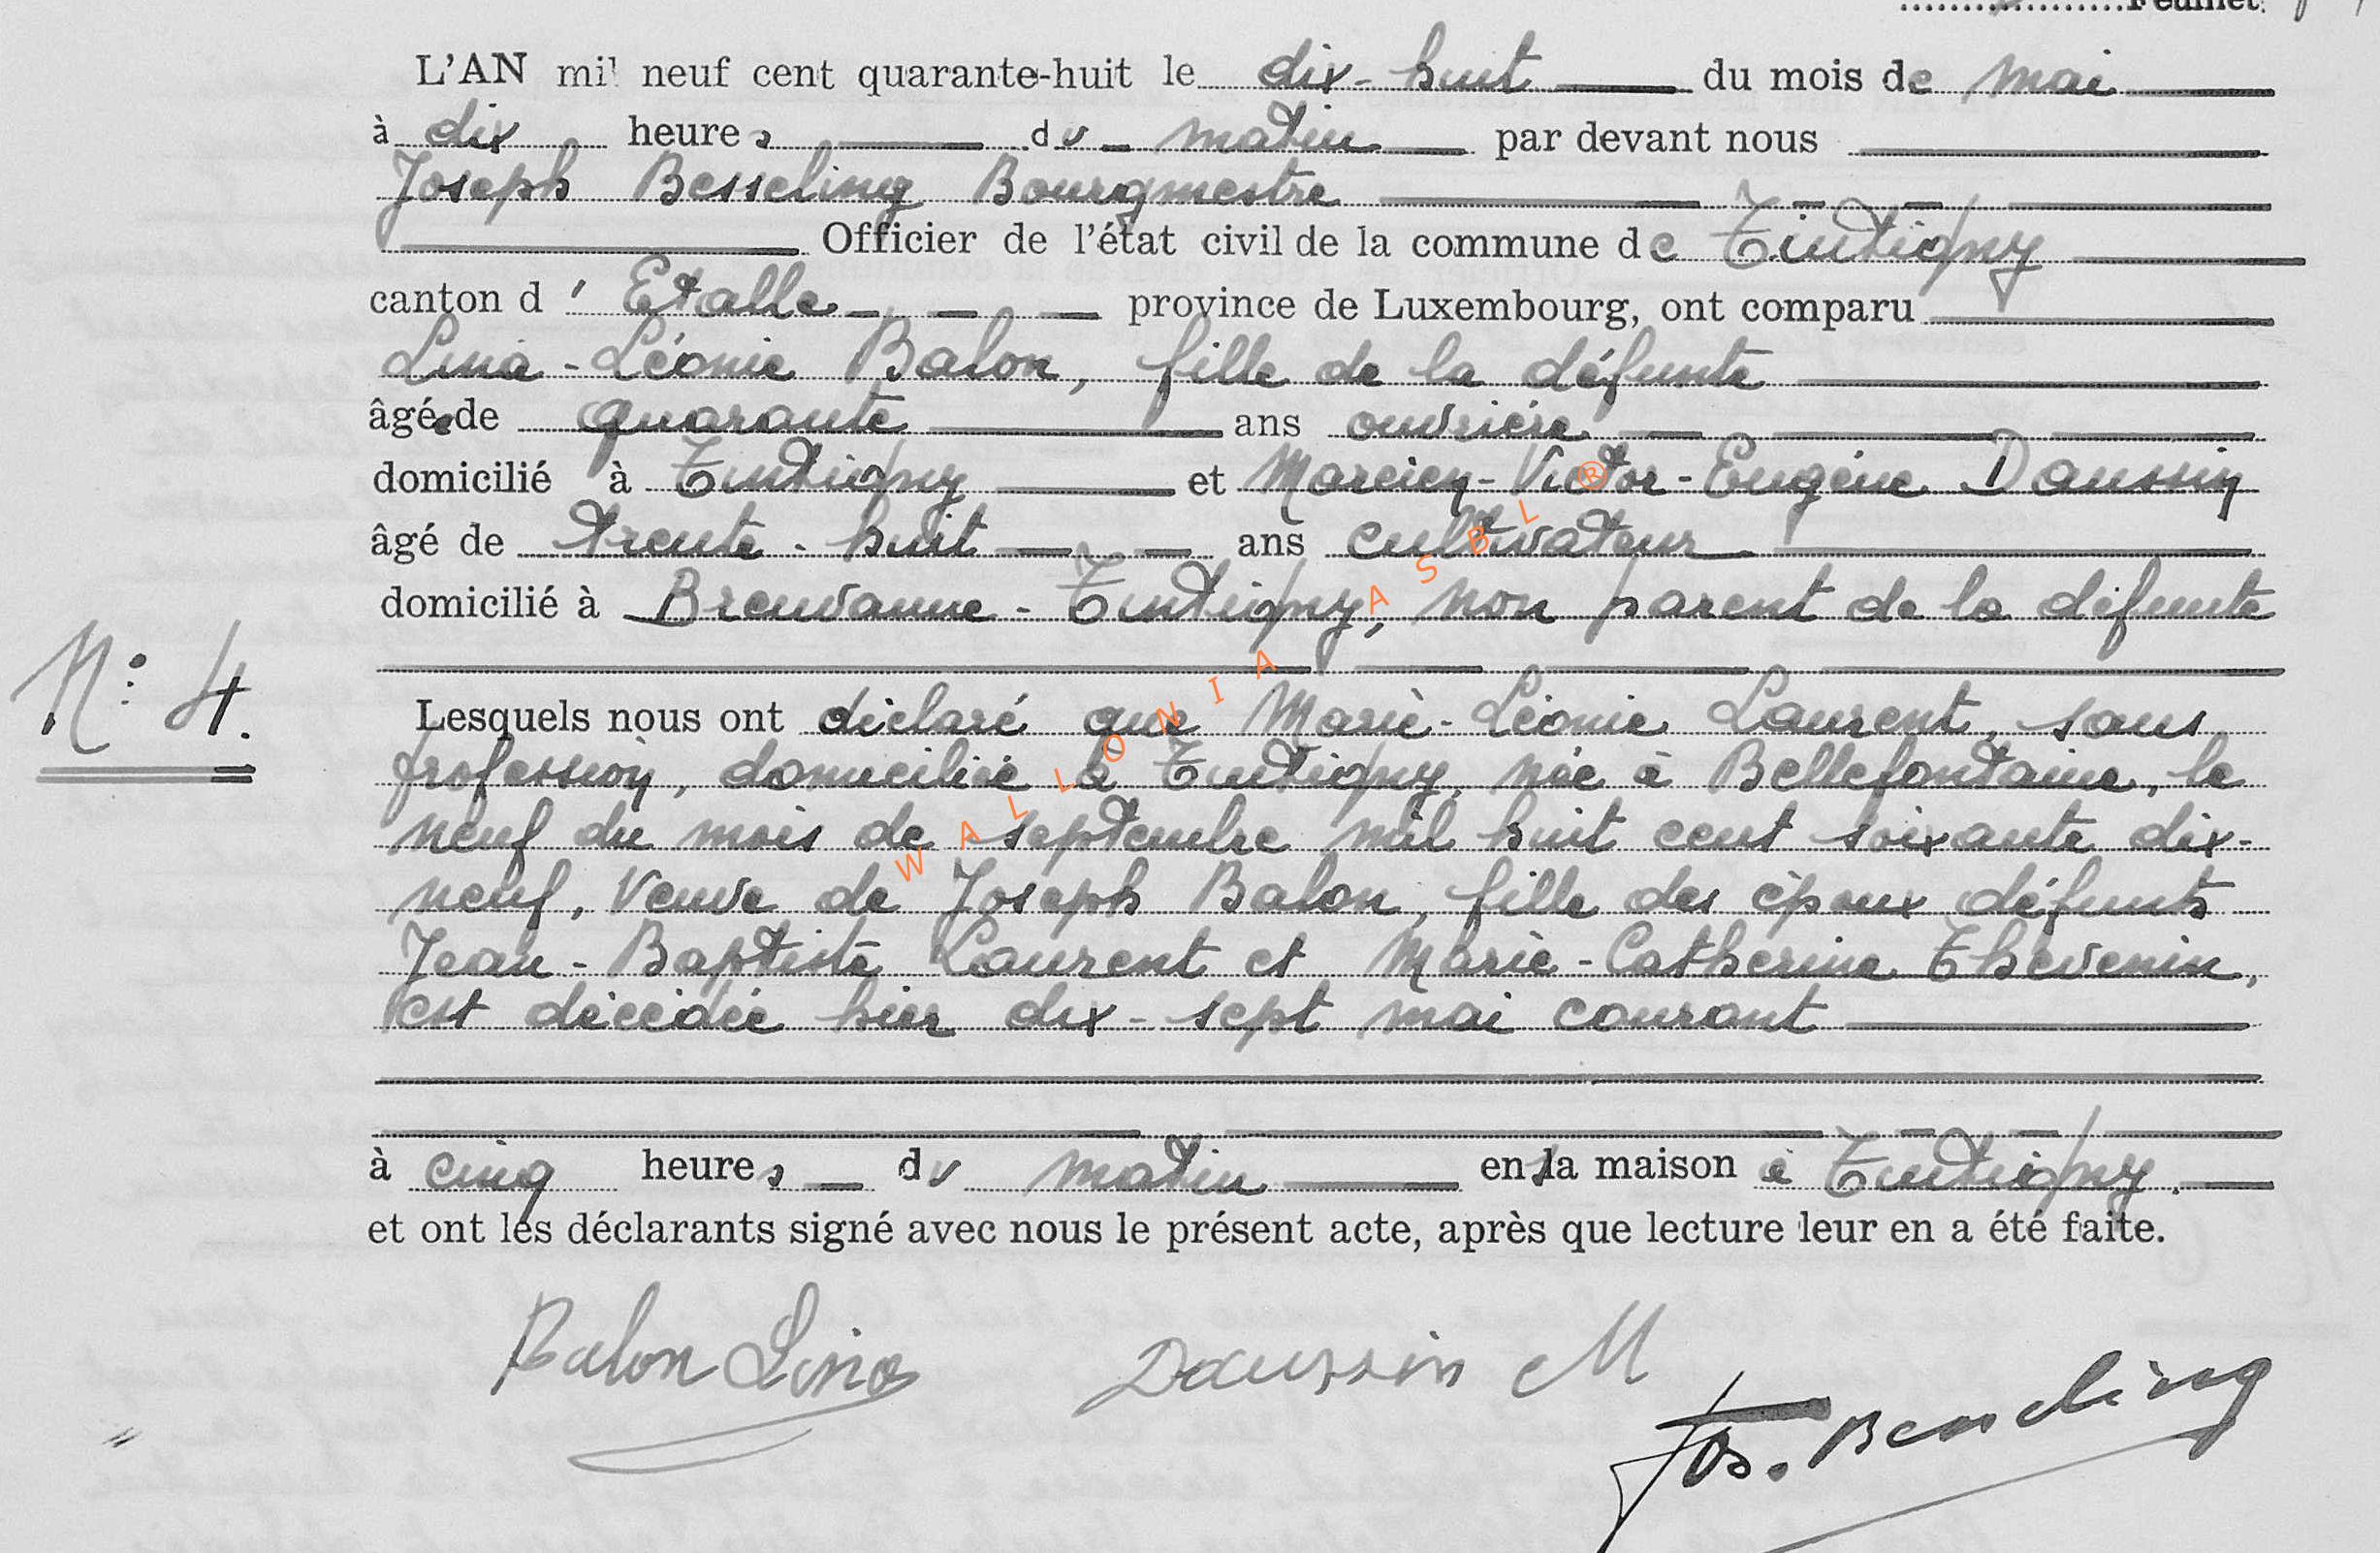 Feuillet.
L'AN mil neuf cent quarante-huit le dix-huit du mois de mai
à dix heures du matin par devant nous
Joseph Besseling Bourgmestre
Officier de l'état civil de la commune de Tintigny
canton d'Etalle province de Luxembourg, ont comparu
Lina-Léonie Balon, fille de la défunte
âgée de quarante ans ouvrière
domicilié à Tintigny et Marcien-Victor-Eugène Daussin
âgé de trente-huit ans cultivateur
domicilié à Breuvanne-Tintigny, non parent de la défunte
N° 4.
Lesquels nous ont déclaré que Marie-Léonie Laurent, sans
profession, domiciliée à Tintigny, née à Bellefontaine, le
neuf du mois de septembre mil huit cent soixante dix-
neuf, veuve de Joseph Balon, fille des époux défunts
Jean-Baptiste Laurent et Marie-Catherine Thevenin,
est décédée hier dix-sept mai courant
à cinq heures du matin en sa maison à Tintigny.
et ont les déclarants signé avec nous le présent acte, après que lecture leur en a été faite.
Balon Lina Daussin M
Jos. Besseling
WALLONIA ASBL ®